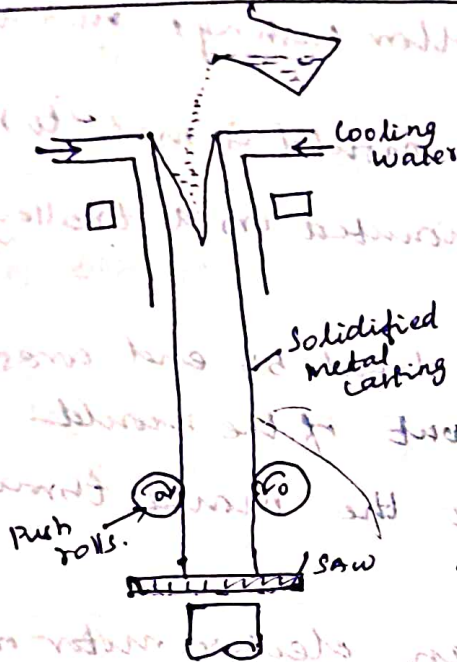 Cooling
water
Solidified
metal
casting
push
rolls.
SAW